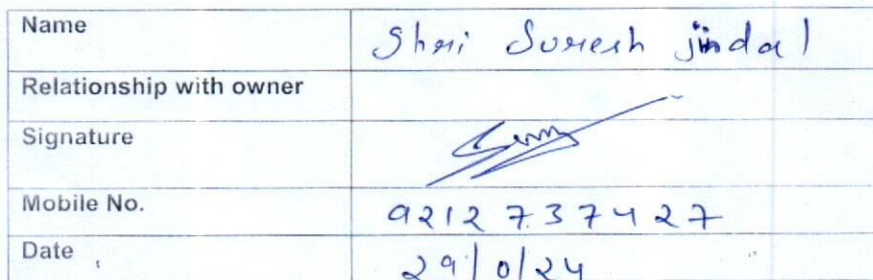 Name Shri Suresh jindal
Relationship with owner
Signature
Mobile No. 9212737427
Date 29/0/24